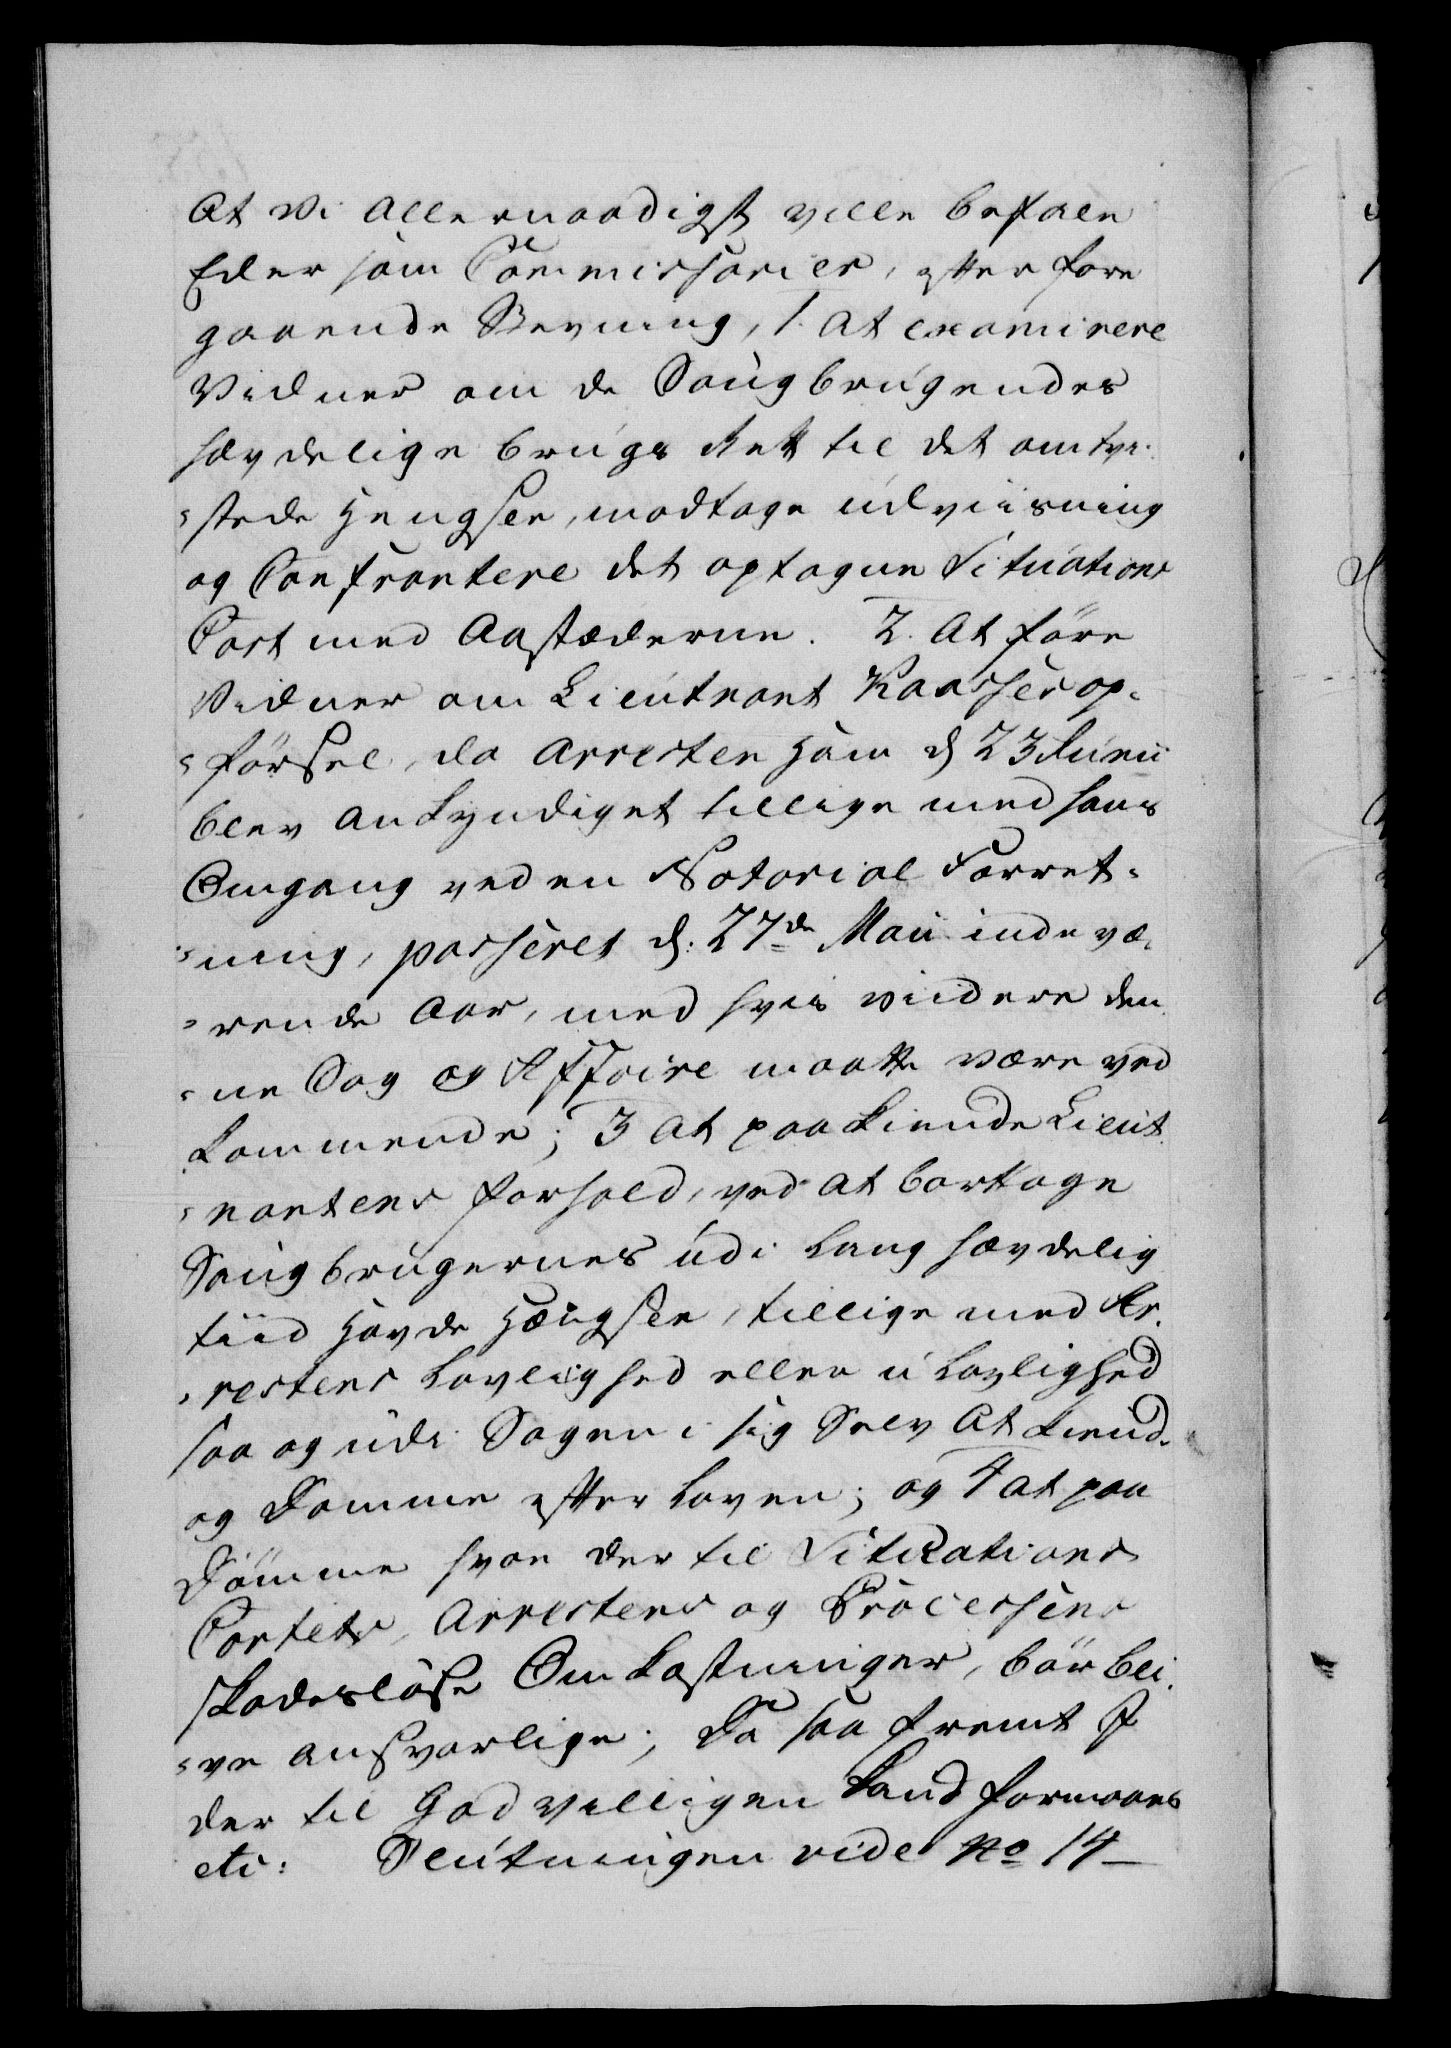 At Vi Allernaadigst ville befale
Eder som Commissarier, efter fore
gaaende Stevning, 1. At examinere
Vidner om de Saugbrugendes
hævdelige brugs Rett til det omtvi-
=stede Hengsel, modtage udviisning
og Confrontere det optagne Situations
Cart med Aastæderne. 2. At føre
Vidner om Lieutnant Kaasses op-
=førsel, da Arresten ham d 23 Junii
blev Ankyndiget tillige med hans
Omgang ved en Notarial Forret-
=ning, passeret d: 27de Maii indevæ-
=rende Aar, med hvis viidere den
=ne Sag og Affaire maatte være ved
kommende; 3 At paakiende Lieut
=nantens forhold, ved at borttage
Saugbrugernes udi lang hævdelig
tiid Havde Hængsel, tillige med Ar-
=restens Lovlighed eller u lovlighed
saa og udi Sagen i sig Selv At kiend-
og Domme efter Loven; og 4 at paa
Dømme hvor der til Situations
Cartets, Arrestens og Processens
skadesløse Omkostninger, bør bli-
=ve ansvarlige; Da saa fremt I
der til Godvilligen kand formaaes
etc: Slutningen vide No 14